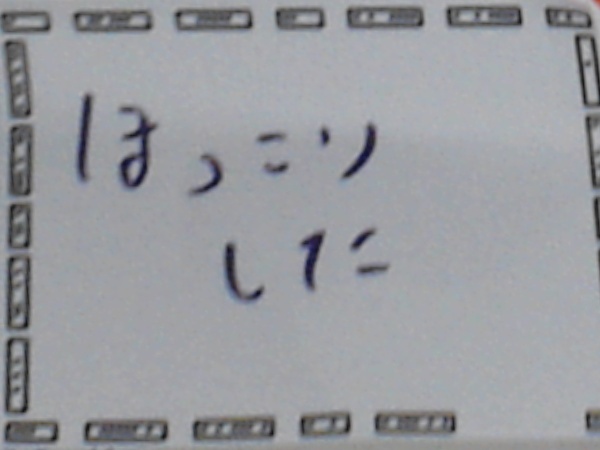 ほっこり
した